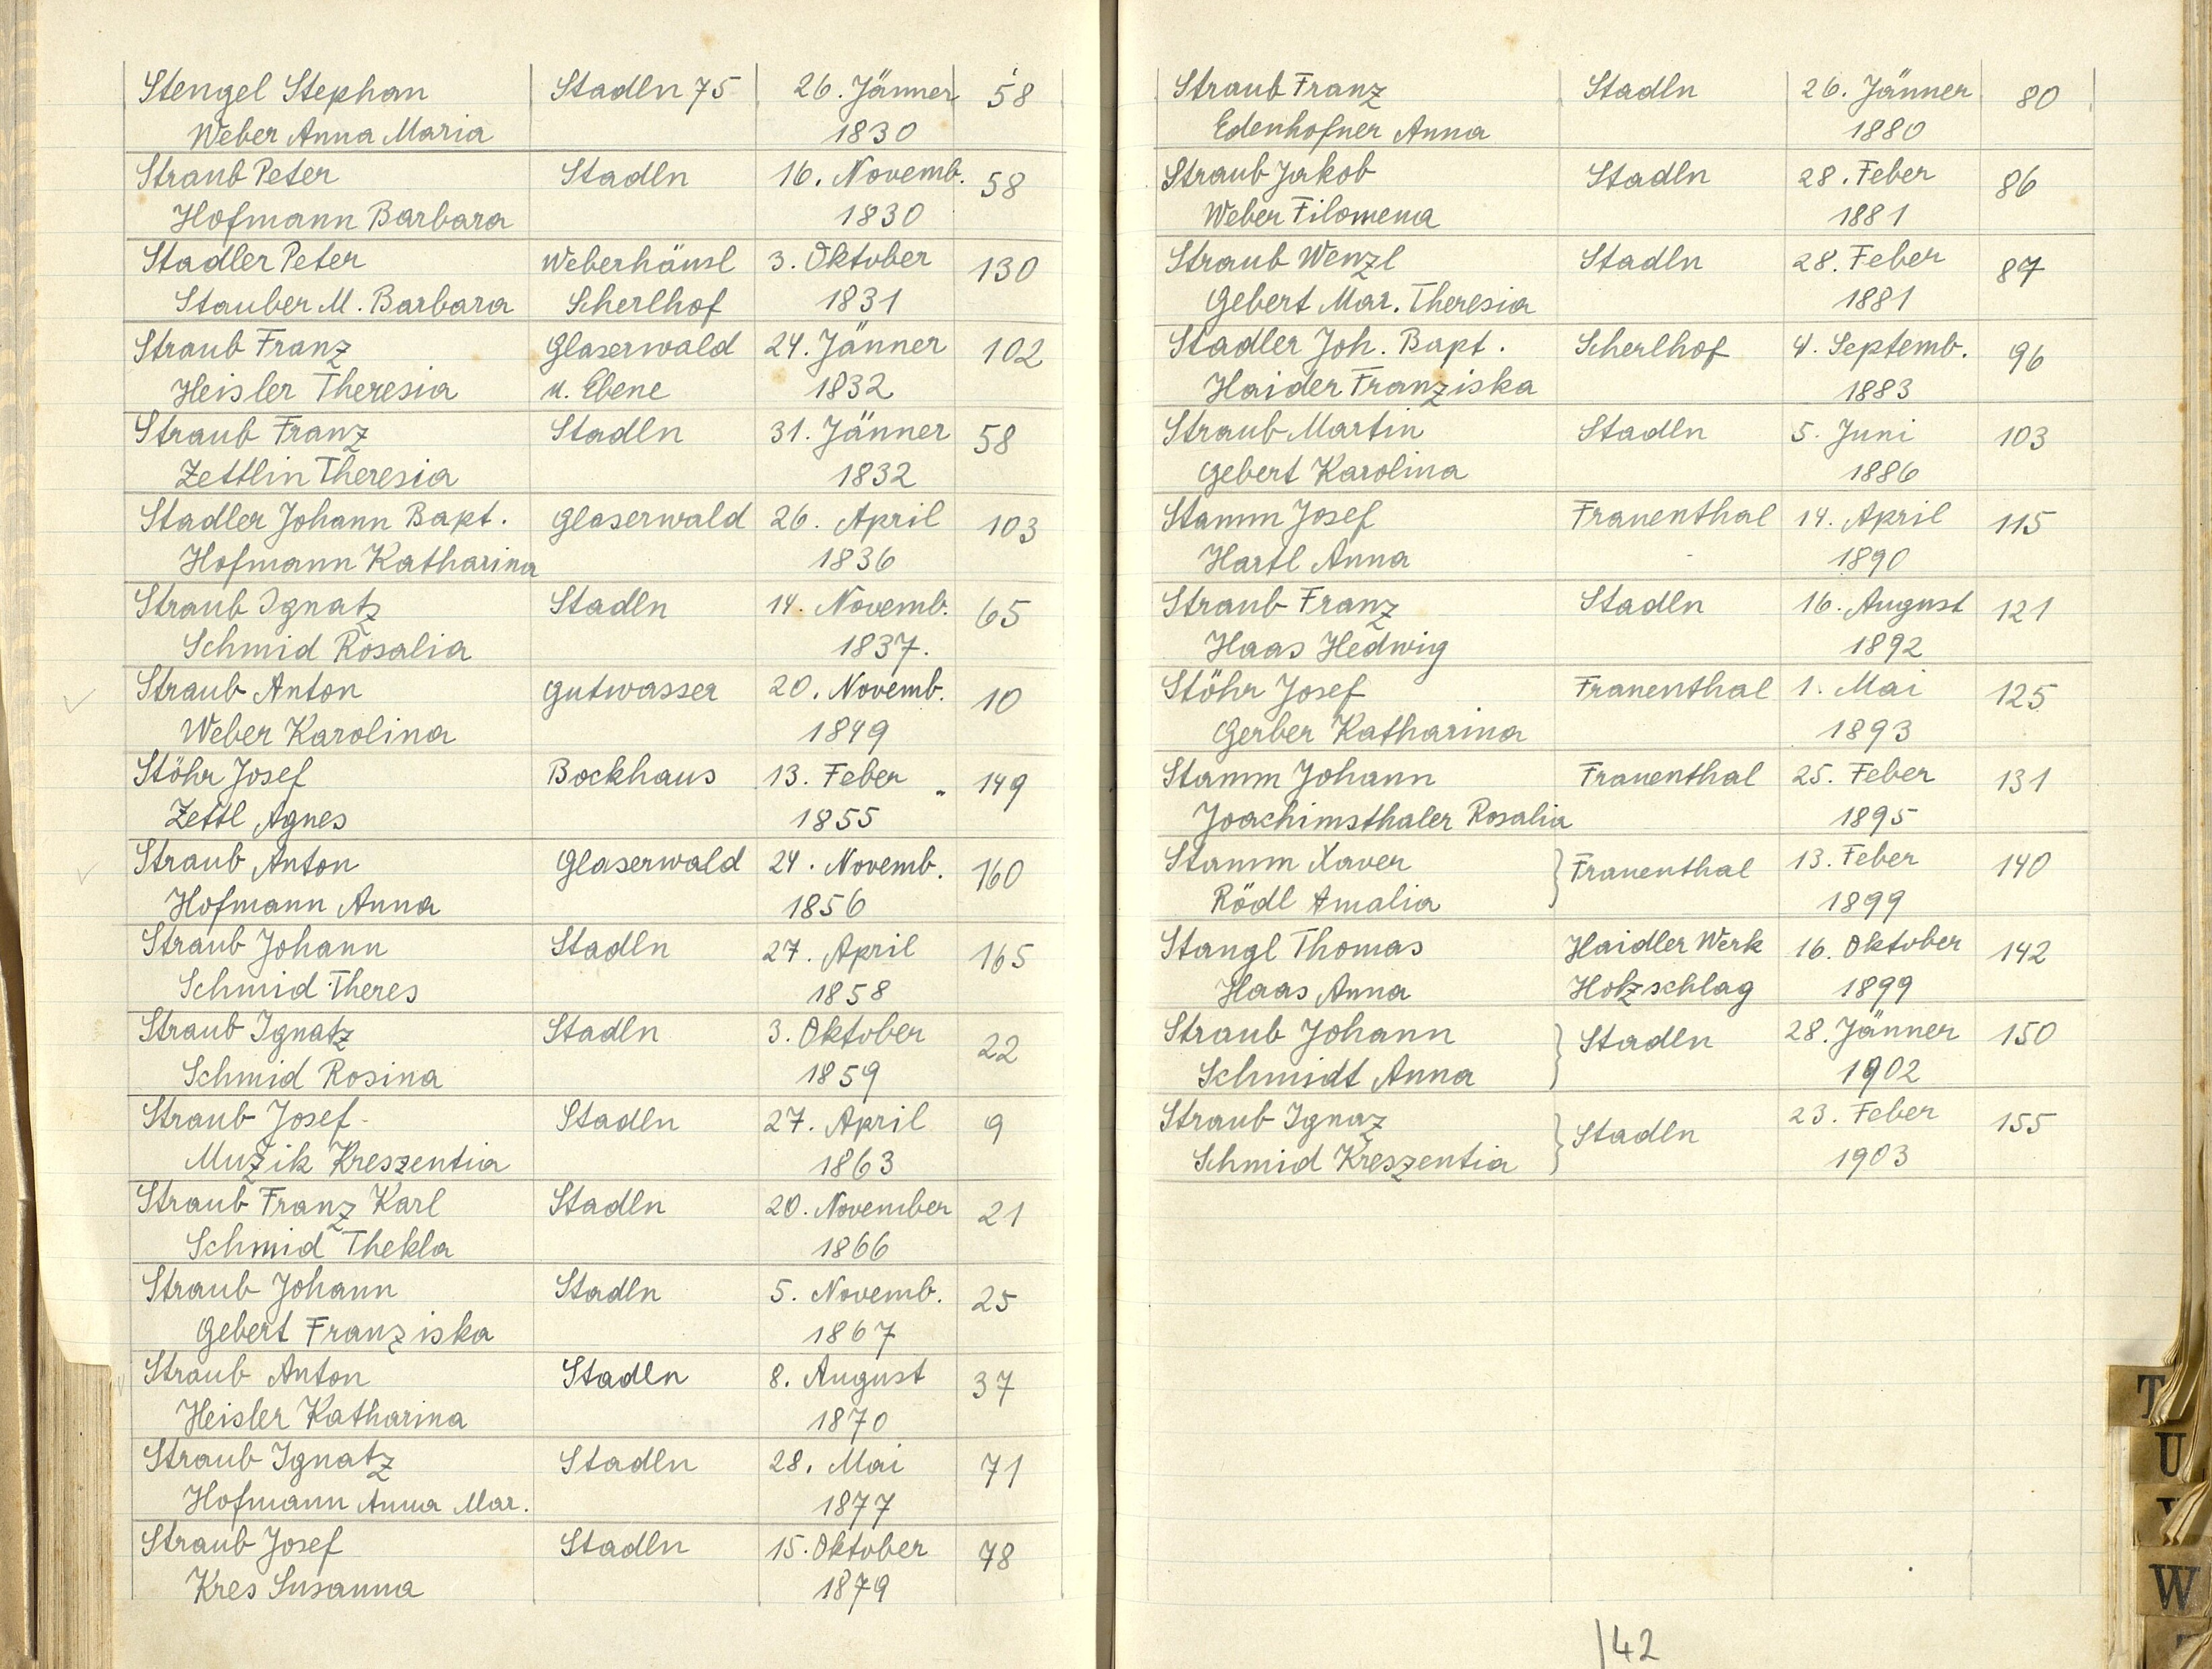 Stengel Stephan Stadln 75 26. Jänner 58
Weber Anna Maria 1830
Straub Peter Stadln 16. Novemb. 58
Hofmann Barbara 1830
Stadler Peter Weberhäusl 3. Oktober 130
Stauber M. Barbara Scherlhof 1831
Straub Franz Glaserwald 24. Jänner 102
Heisler Theresia u. Ebene 1832
Straub Franz Stadln 31. Jänner 58
Zettlin Theresia 1832
Stadler Johann Bapt. Glaserwald 26. April 103
Hofmann Katharina 1836
Straub Ignatz Stadln 14. Novemb. 65
Schmid Rosalia 1837.
Straub Anton Gutwasser 20. Novemb. 10
Weber Karolina 1849
Stöhr Josef Bockhaus 13. Feber 149
Zettl Agnes 1855
Straub Anton Glaserwald 24. Novemb. 160
Hofmann Anna 1856
Straub Johann Stadln 27. April 165
Schmid Theres 1858
Straub Ignatz Stadln 3. Oktober 22
Schmid Rosina 1859
Straub Josef Stadln 27. April 9
Muzik Kreszentia 1863
Straub Franz Karl Stadln 20. November 21
Schmid Thekla 1866
Straub Johann Stadln 5. Novemb. 25
Gebert Franziska 1867
Straub Anton Stadln 8. August 37
Heisler Katharina 1870
Straub Ignatz Stadln 28. Mai 71
Hofmann Anna Mar. 1877
Straub Josef Stadln 15. Oktober 78
Kres Susanna 1879
Straub Franz Stadln 26. Jänner 80
Edenhofner Anna 1880
Straub Jakob Stadln 28. Feber 86
Weber Filomena 1881
Straub Wenzl Stadln 28. Feber 87
Gebert Mar. Theresia 1881
Stadler Joh. Bapt. Scherlhof 4. Septemb. 96
Haider Franziska 1883
Straub Martin Stadln 5. Juni 103
Gebert Karolina 1886
Stamm Josef Frauenthal 14. April 115
Hartl Anna 1890
Straub Franz Stadln 16. August 121
Haas Hedwig 1892
Stöhr Josef Frauenthal 1. Mai 125
Gerber Katharina 1893
Stamm Johann Frauenthal 25. Feber 131
Joachimsthaler Rosalia 1895
Stamm Xaver Frauenthal 13. Feber 140
Rödl Amalia 1899
Stangl Thomas Haidler Werk 16. Oktober 142
Haas Anna Holzschlag 1899
Straub Johann Stadln 28. Jänner 150
Schmidt Anna 1902
Straub Ignaz Stadln 23. Feber 155
Schmid Kreszentia 1903
142
T
U
W